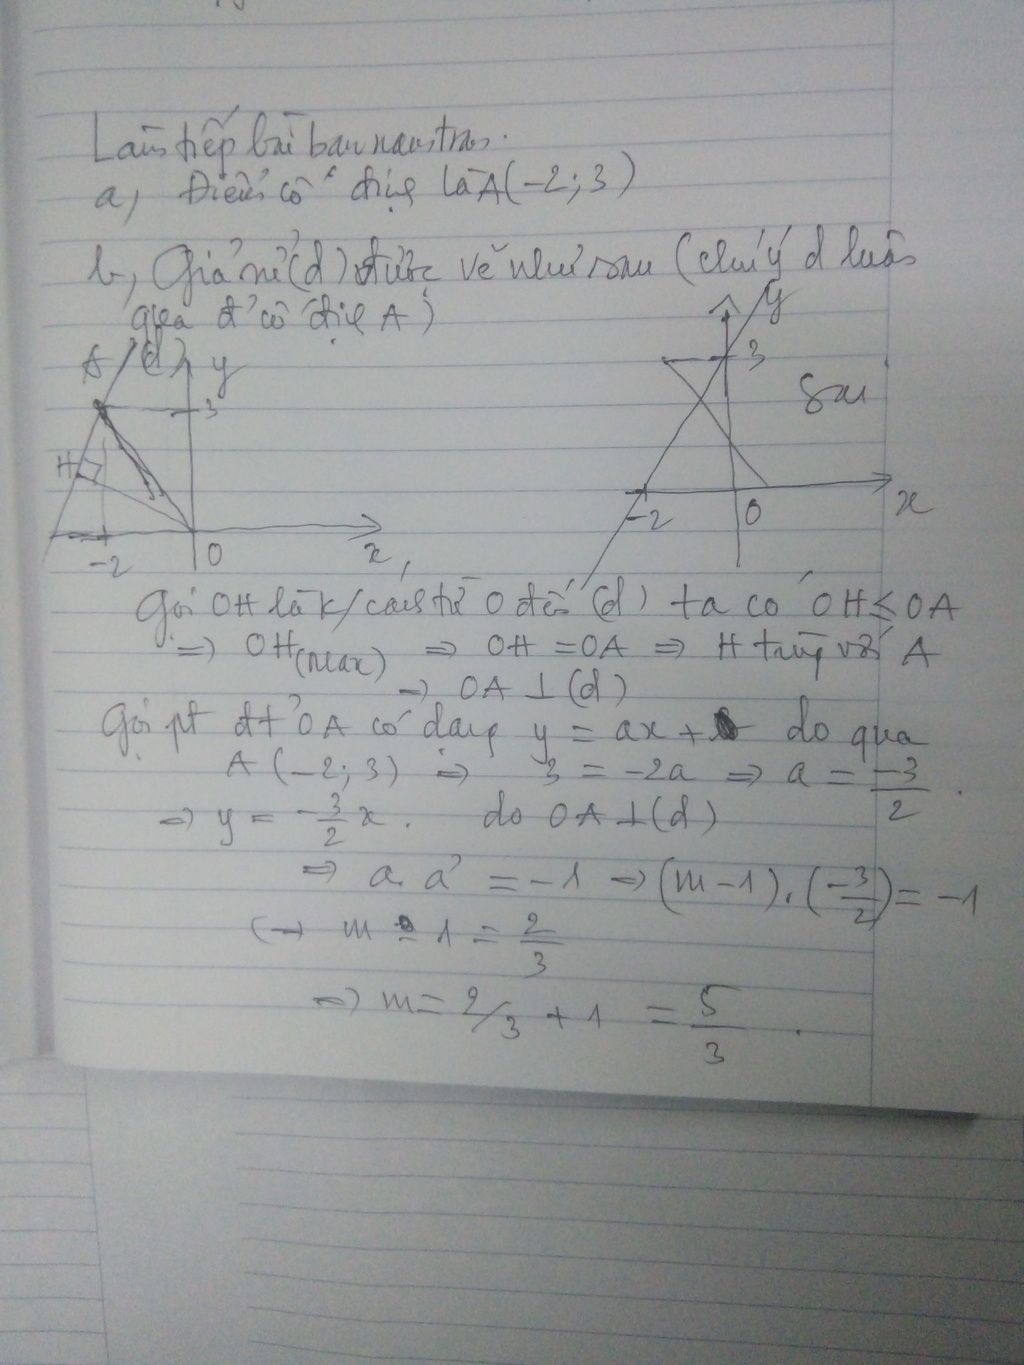 Làm tiếp bài bạn nam trên.
a, Điểm cố định là A(-2; 3)
b, Giả sử (d) được vẽ như sau (chú ý d luôn
qua đ' cố định A)
A (d) y
3
H
-2 0 x,
y
3
Sai
-2 0 x
Gọi OH là k/cách từ O đến (d) ta có OH ≤ OA
=> OH(max) => OH = OA => H trùng với A
=> OA ⊥ (d)
Gọi pt đt OA có dạng y = ax + do qua
A (-2; 3) => 3 = -2a => a = -3/2.
=> y = -3/2 x. do OA ⊥ (d)
=> a. a' = -1 => (m-1). (-3/2) = -1
(-> m - 1 = 2/3
=> m = 2/3 + 1 = 5/3.